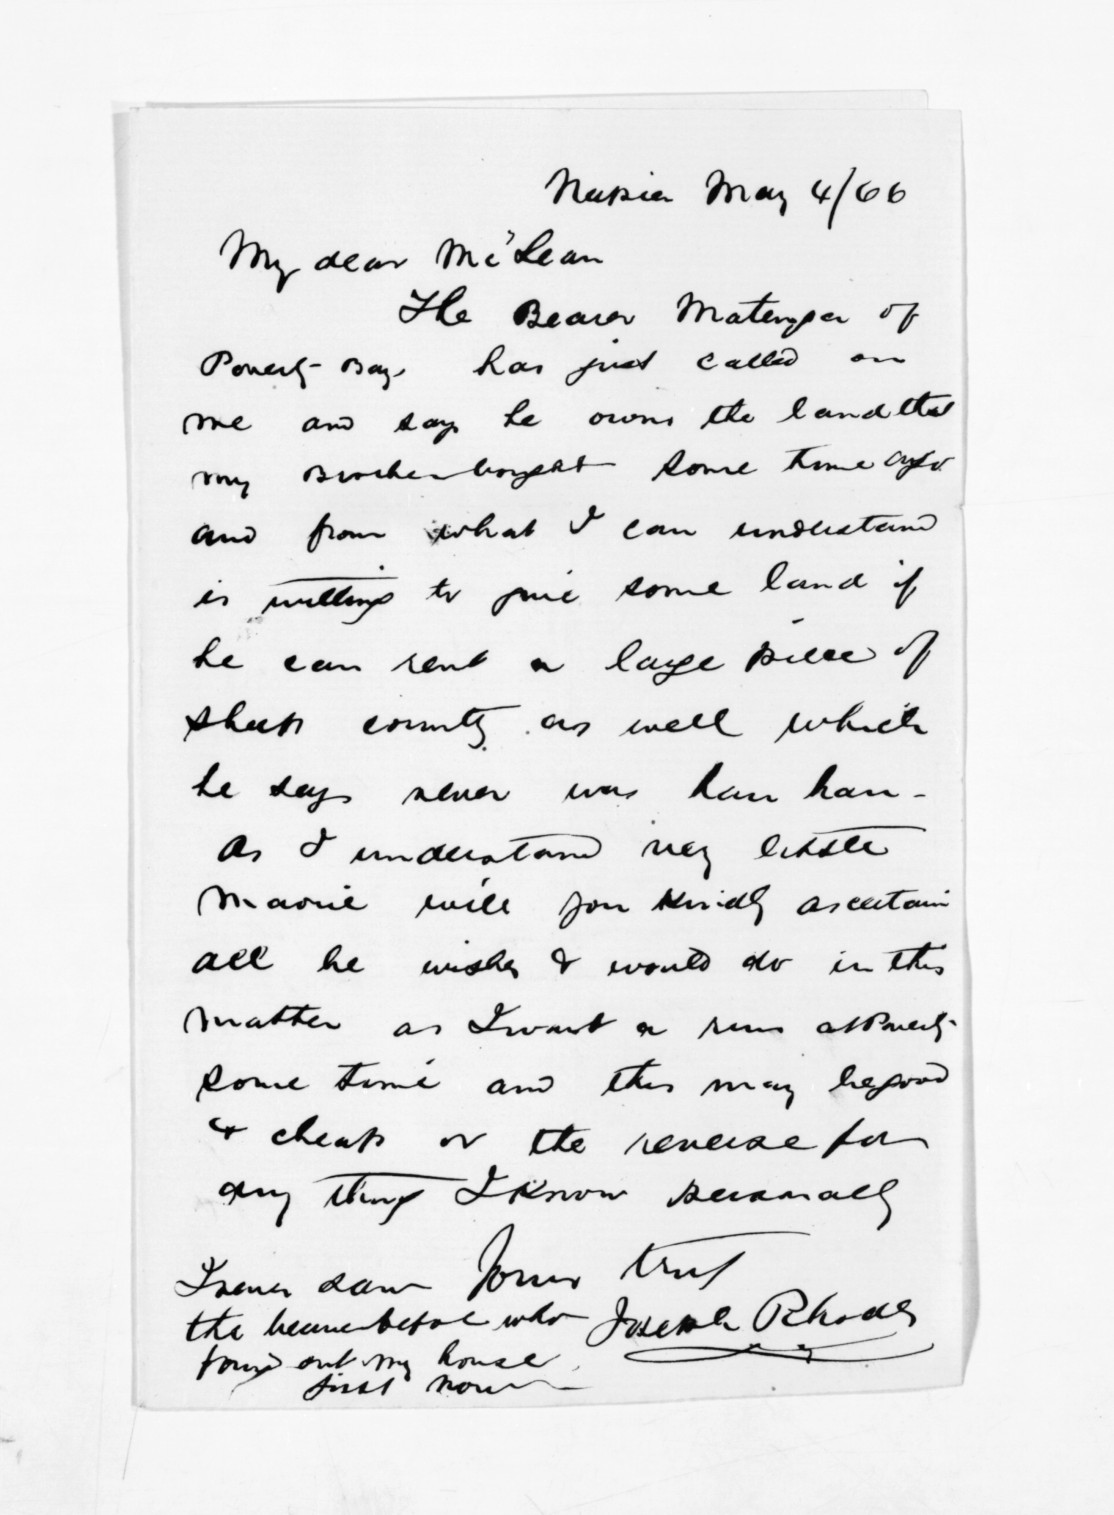 Napier May 4/66
My dear McLean
The Bearer Matenga of
Poverty Bay has just called on
me and says he owns the land that
my Brother bought some time ago
and from what I can understand
is willing to give some land if
he can rent a large piece of
sheep country as well which
he says never was hau hau -
As I understand very little
Maorie will you kindly ascertain
all he wishes & would do in this
matter as I want a run at Poverty
some time and this may be good
& cheap or the reverse for
any thing I know personally
Yours truly
Joseph Rhodes
I never saw
the bearer before who
found out my house
just now